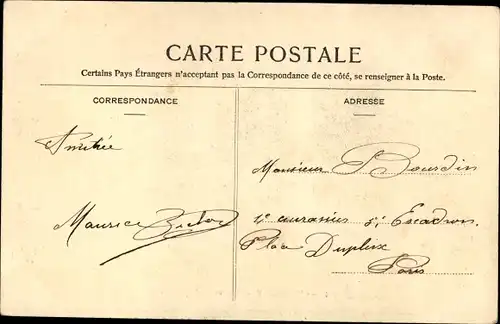 CARTE POSTALE
Certains Pays Étrangers n'acceptant pas la Correspondance de ce côté, se renseigner à la Poste.
CORRESPONDANCE
ADRESSE
Amitiée
Maurice
Monsieur Bourdin
Escadron.
Place Dupleix
Paris